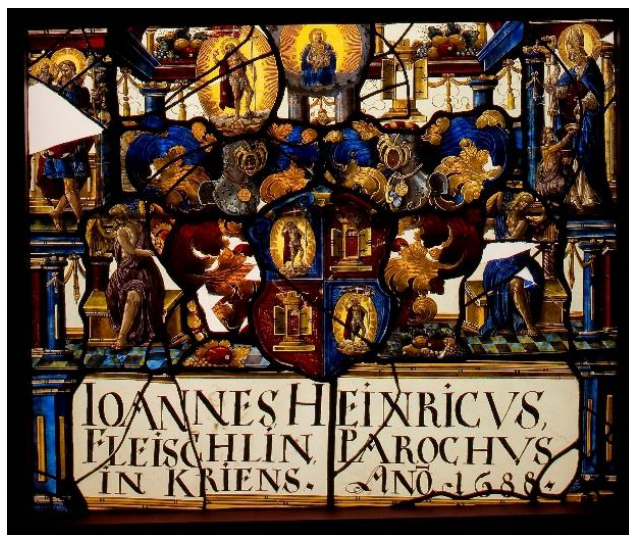 IOANNES HEINRICVS,
FLEISCHLIN, PAROCHVS
IN KRIENS. ANÕ 1688.